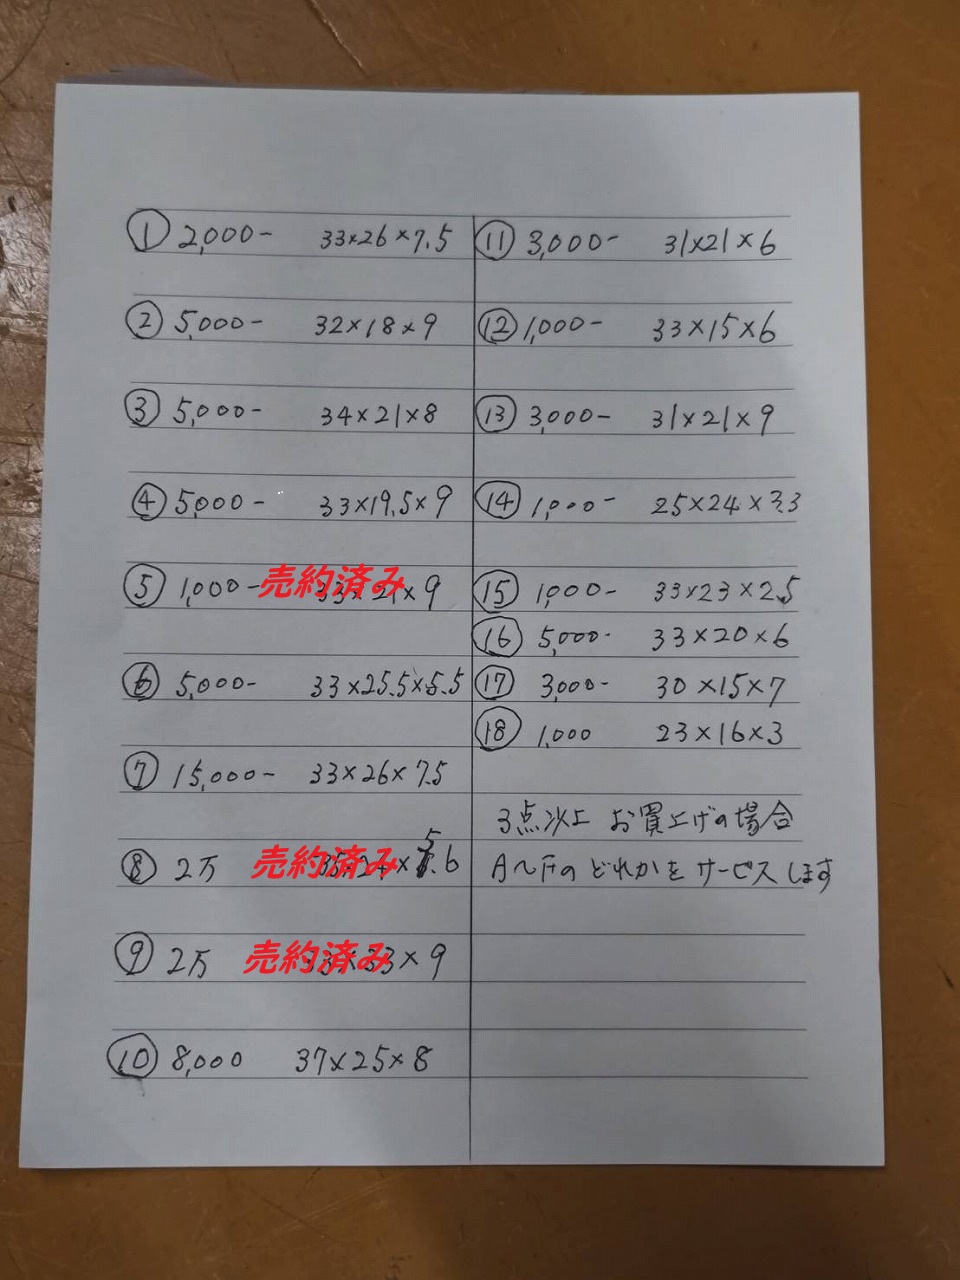 ① 2,000- 33×26×7.5
② 5,000- 32×18×9
③ 5,000- 34×21×8
④ 5,000- 33×19.5×9
⑤ 1,000- 売約済み 33×21×9
⑥ 5,000- 33×25.5×5.5
⑦ 15,000- 33×26×7.5
⑧ 2万 売約済み
⑨ 2万 売約済み 33×33×9
⑩ 8,000 37×25×8
⑪ 3,000- 31×21×6
⑫ 1,000- 33×15×6
⑬ 3,000- 31×21×9
⑭ 1,000- 25×24×3.3
⑮ 1,000- 33×23×2.5
⑯ 5,000- 33×20×6
⑰ 3,000- 30×15×7
⑱ 1,000 23×16×3
3点以上 お買上げの場合
A〜Fの どれかを サービスします